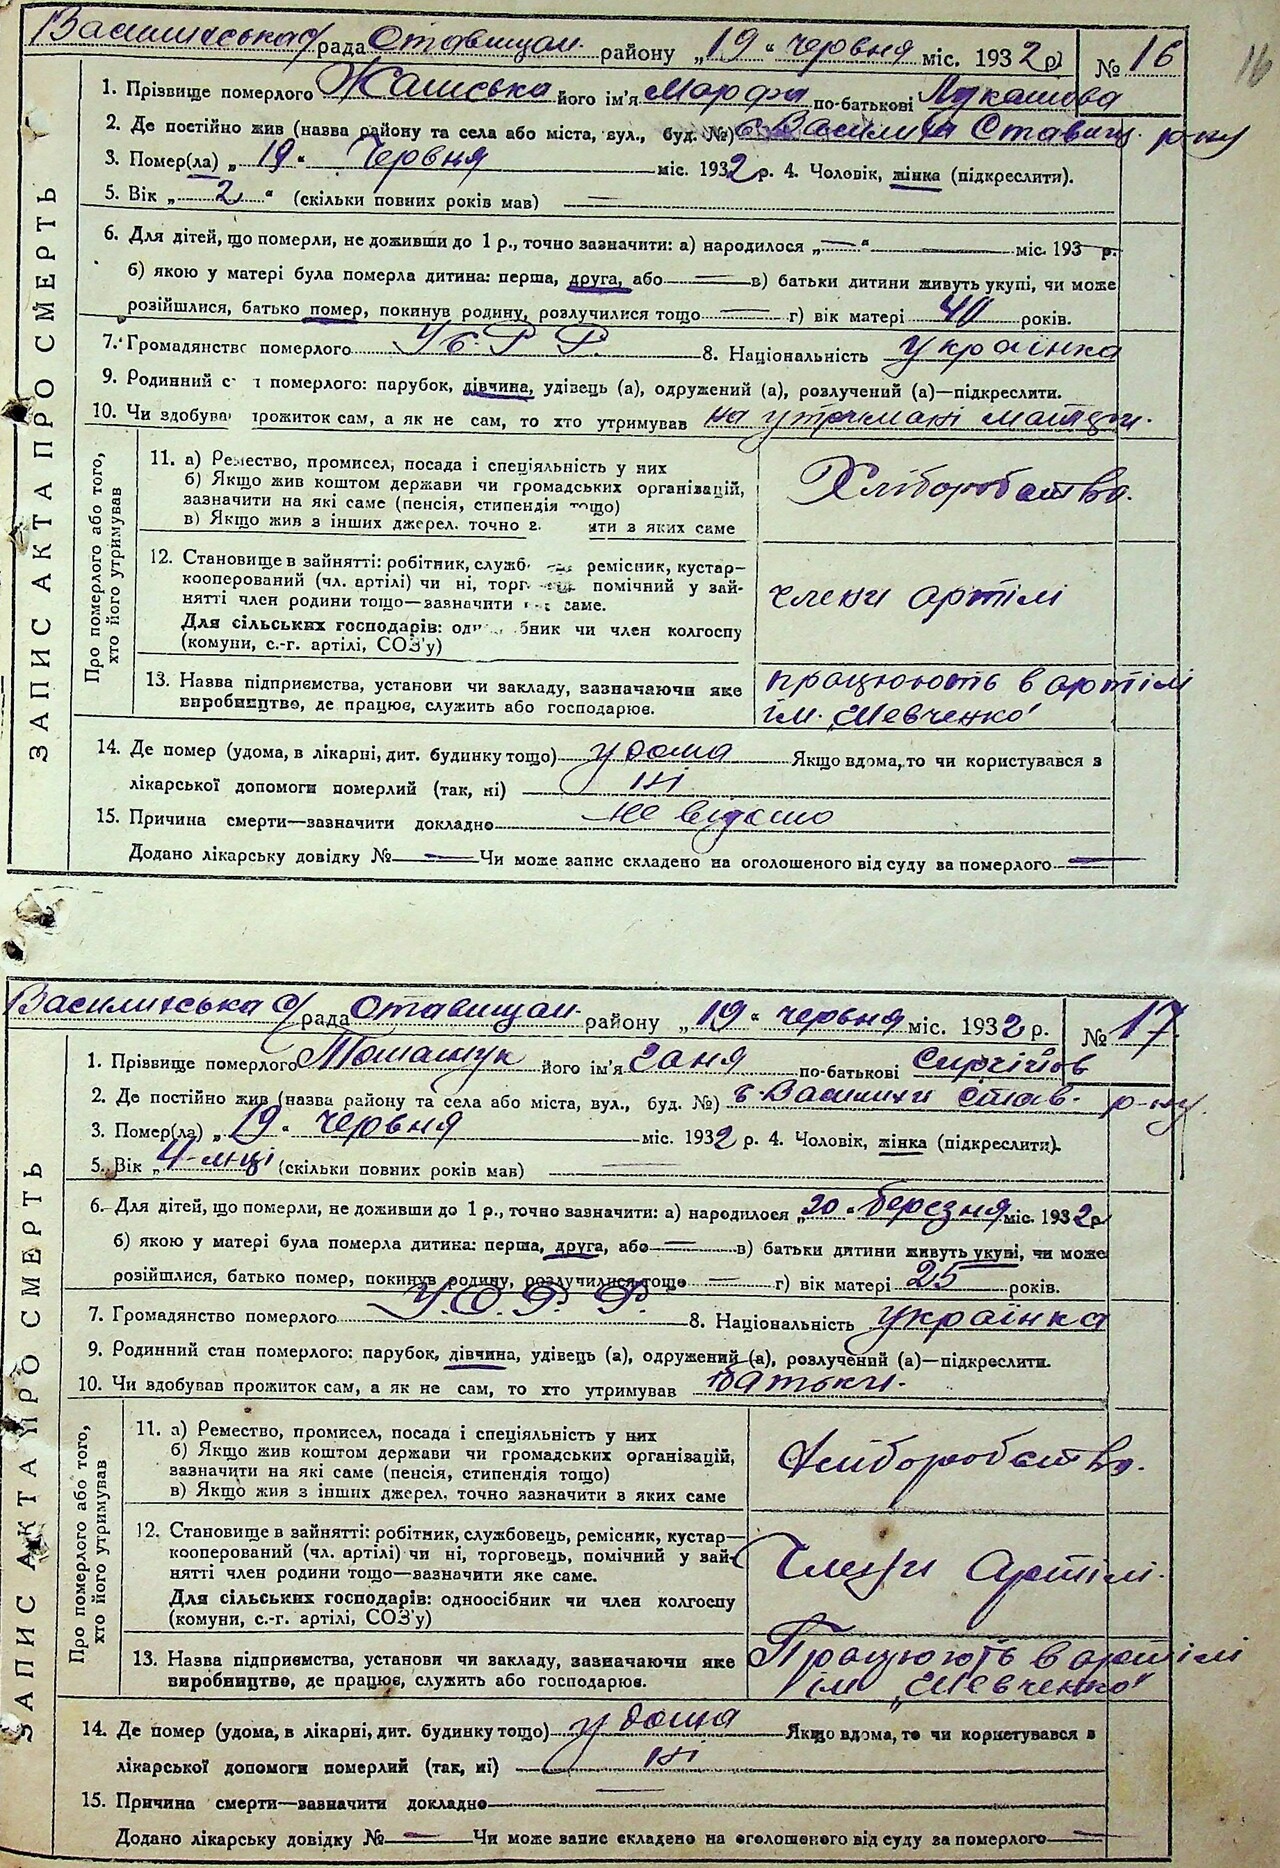 Василиська с/рада Ставищан. району „19“ червня міс. 1932 р.
№ 16
16
1. Прізвище померлого його ім'я Марфа по-батькові Лукашова
2. Де постійно жив (назва району та села або міста, вул., буд. №) с. Василиха Ставищ. р-ну
3. Помер(ла) „19“ Червня міс. 1932 р. 4. Чоловік, жінка (підкреслити).
5. Вік „2“ (скільки повних років мав) —
6. Для дітей, що померли, не доживши до 1 р., точно зазначити: а) народилося „—“ — міс. 193 р.
б) якою у матері була померла дитина: перша, друга, або — в) батьки дитини живуть укупі, чи може
розійшлися, батько помер, покинув родину, розлучилися тощо — г) вік матері 40 років.
7. Громадянство померлого У.С.Р.Р. 8. Національність українка
9. Родинний с н померлого: парубок, дівчина, удівець (а), одружений (а), розлучений (а)—підкреслити.
10. Чи здобував прожиток сам, а як не сам, то хто утримував на утримані
ЗАПИС АКТА ПРО СМЕРТЬ
Про померлого або того, хто його утримував
11. а) Ремество, промисел, посада і спеціяльність у них
б) Якщо жив коштом держави чи громадських організацій,
зазначити на які саме (пенсія, стипендія тощо)
в) Якщо жив з інших джерел. точно з ити з яких саме
Хліборобство.
12. Становище в зайнятті: робітник, служб ремісник, кустар—
кооперований (чл. артілі) чи ні, торг помічний у зай-
нятті член родини тощо—зазначити саме.
Для сільських господарів: од бник чи член колгоспу
(комуни, с.-г. артілі, СОЗ'у)
члени артілі
13. Назва підприємства, установи чи закладу, зазначаючи яке
виробництво, де працює, служить або господарює.
працюють в артілі
ім. „Шевченко“
14. Де помер (удома, в лікарні, дит. будинку тощо) у дома Якщо вдома, то чи користувався з
лікарської допомоги померлий (так, ні) ні
15. Причина смерти—зазначити докладно не відомо
Додано лікарську довідку № — Чи може запис складено на оголошеного від суду за померлого —
Василиська с/рада Ставищан. району „19“ червня міс. 1932 р.
№ 17.
1. Прізвище померлого Томащук його ім'я Ганя по-батькові
2. Де постійно жив (назва району та села або міста, вул., буд. №) с. Василихи Став. р-ну.
3. Помер(ла) „19“ червня міс. 1932 р. 4. Чоловік, жінка (підкреслити).
5. Вік „4-мці (скільки повних років мав) —
6. Для дітей, що померли, не доживши до 1 р., точно зазначити: а) народилося „20“ березня міс. 1932 р
б) якою у матері була померла дитина: перша, друга, або — в) батьки дитини живуть укупі, чи може
розійшлися, батько помер, покинув родину, розлучилися тощо — г) вік матері 25 років.
7. Громадянство померлого У.С.Р.Р. 8. Національність українка
9. Родинний стан померлого: парубок, дівчина, удівець (а), одружений (а), розлучений (а)—підкреслити.
10. Чи здобував прожиток сам, а як не сам, то хто утримував батьки.
ЗАПИС АКТА ПРО СМЕРТЬ
Про померлого або того, хто його утримував
11. а) Ремество, промисел, посада і спеціяльність у них
б) Якщо жив коштом держави чи громадських організацій,
зазначити на які саме (пенсія, стипендія тощо)
в) Якщо жив з інших джерел, точно зазначити з яких саме
Хліборобство.
12. Становище в зайнятті: робітник, службовець, ремісник, кустар—
кооперований (чл. артілі) чи ні, торговець, помічний у зай-
нятті член родини тощо—зазначити яке саме.
Для сільських господарів: одноосібник чи член колгоспу
(комуни, с.-г. артілі, СОЗ'у)
Члени артілі.
13. Назва підприємства, установи чи закладу, зазначаючи яке
виробництво, де працює, служить або господарює.
Працюють в артілі
ім „Шевченко“
14. Де помер (удома, в лікарні, дит. будинку тощо) у дома Якщо вдома, то чи користувався з
лікарської допомоги померлий (так, ні) ні
15. Причина смерти—зазначити докладно —
Додано лікарську довідку № — Чи може запис складено на оголошеного від суду за померлого —